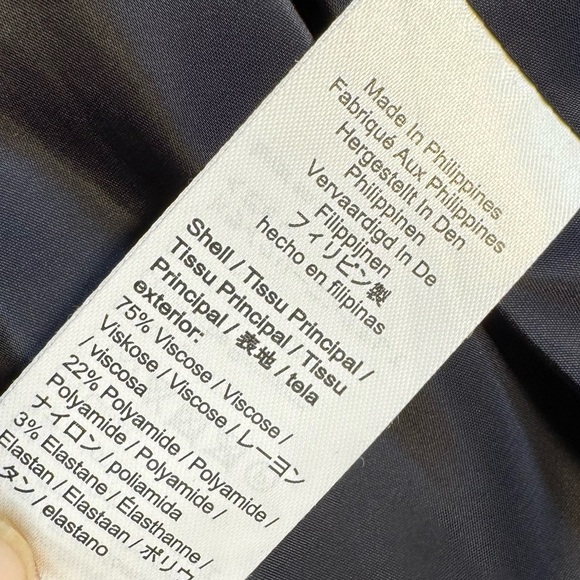 Made In Philippines
Fabriqué Aux Philippines
Hergestellt In Den
Philippinen
Vervaardigd In De
Filippijnen
フィリピン製
hecho en filipinas
Shell / Tissu Principal /
Tissu Principal / Tissu
Principal / 表地 / tela
exterior:
75% Viscose / Viscose /
Viskose / Viscose / レーヨン
/ viscosa
22% Polyamide / Polyamide /
Polyamide / Polyamide /
ナイロン / poliamida
3% Elastane / Élasthanne /
Elastan / Elastaan / ポリウ
タン / elastano